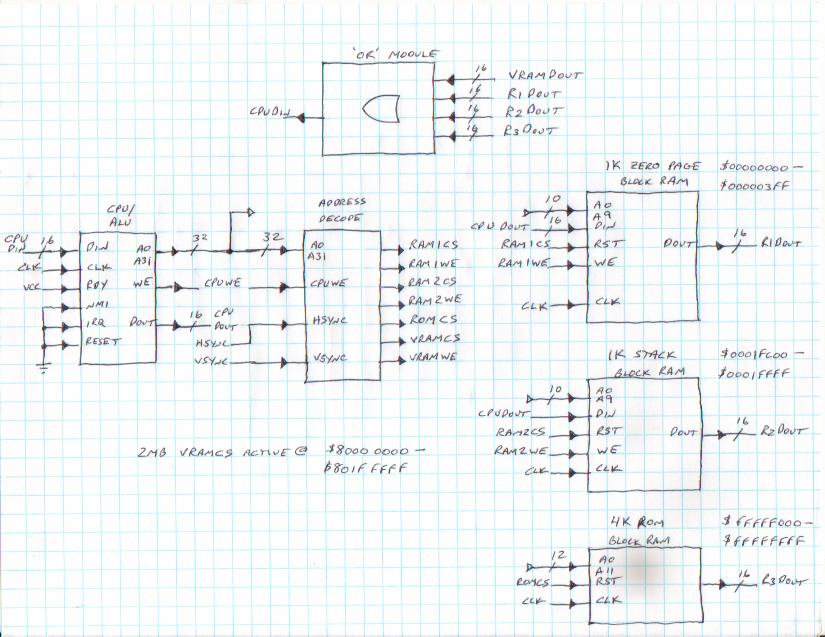 'OR' MODULE
16 VRAMDOUT
16 R1DOUT
16 R2DOUT
16 R3DOUT
CPUDIN
1K ZERO PAGE $00000000 –
BLOCK RAM $000003FF
10 A0
A9
CPU DOUT 16 DIN
RAM1CS RST DOUT 16 R1DOUT
RAM1WE WE
CLK CLK
CPU/
ALU
CPU
DIN 16 DIN A0 32
A31
CLK CLK
VCC RDY WE CPUWE
NMI
IRQ DOUT 16 CPU
DOUT
RESET
HSYNC
VSYNC
ADDRESS
DECODE
32 A0 RAM1CS
A31 RAM1WE
CPUWE RAM2CS
RAM2WE
HSYNC ROMCS
VRAMCS
VSYNC VRAMWE
1K STACK $0001FC00 –
BLOCK RAM $0001FFFF
10 A0
A9
CPUDOUT DIN
RAM2CS RST DOUT 16 R2DOUT
RAM2WE WE
CLK CLK
2MB VRAMCS ACTIVE @ $8000 0000 –
$801F FFFF
4K ROM $FFFFF000 –
BLOCK RAM $FFFFFFFF
12 A0
A11
ROMCS RST 16 R3DOUT
CLK CLK